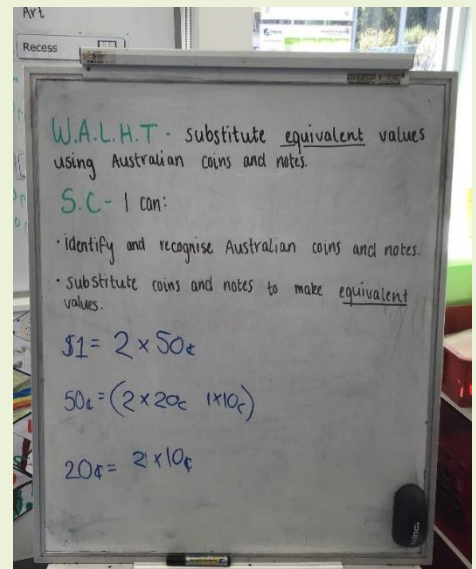 Art
Recess
W.A.L.H.T - substitute equivalent values
using Australian coins and notes.
S.C - I can:
· identify and recognise Australian coins and notes.
· substitute coins and notes to make equivalent
values.
$1 = 2 x 50¢
50¢ = (2 x 20c 1x10c)
20¢ = 2 x 10¢